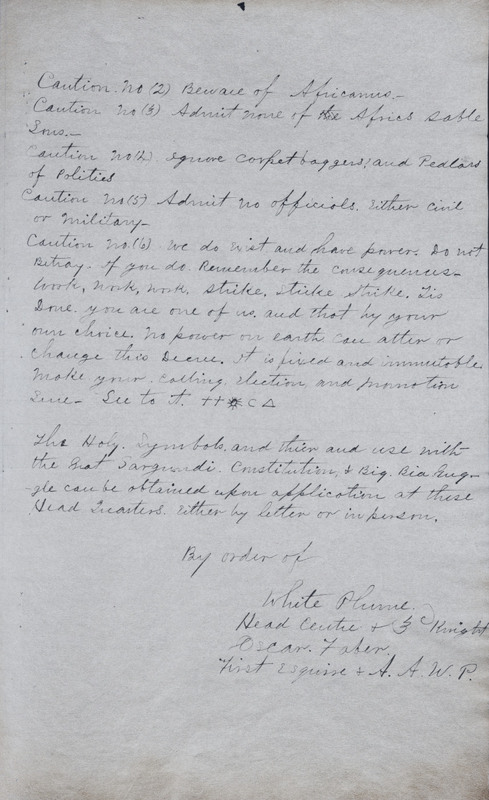 Caution No (2) Beware of Africanus.—
Caution No (3) Admit none of the Africs sable
Sons.—
Caution No(4) ignore carpetbaggers, and Pedlars
of Politics
Caution No(5) Admit no officials. Either civil
or Military—
Caution No.(6) We do Exist and have powers. Do not
Betray. if you do. Remember the consequences—
Work, Work, Work. Strike, Strike Strike. Tis
Done. you are one of us. and that by your
own choice. No power on earth can alter or
change this Decree. it is fixed and immutable
Make your calling, Election, and promotion
Sure— See to it. ++ C △
The Holy. Symbols. and thier and use with
the Constitution, & Big.
can be obtained upon application at these
Head Quarters. Either by letter or in person.
By order of
White Plume.
Head Centre & 3 Knight
Oscar. Faber.
First Esquire & A. A. W. P.